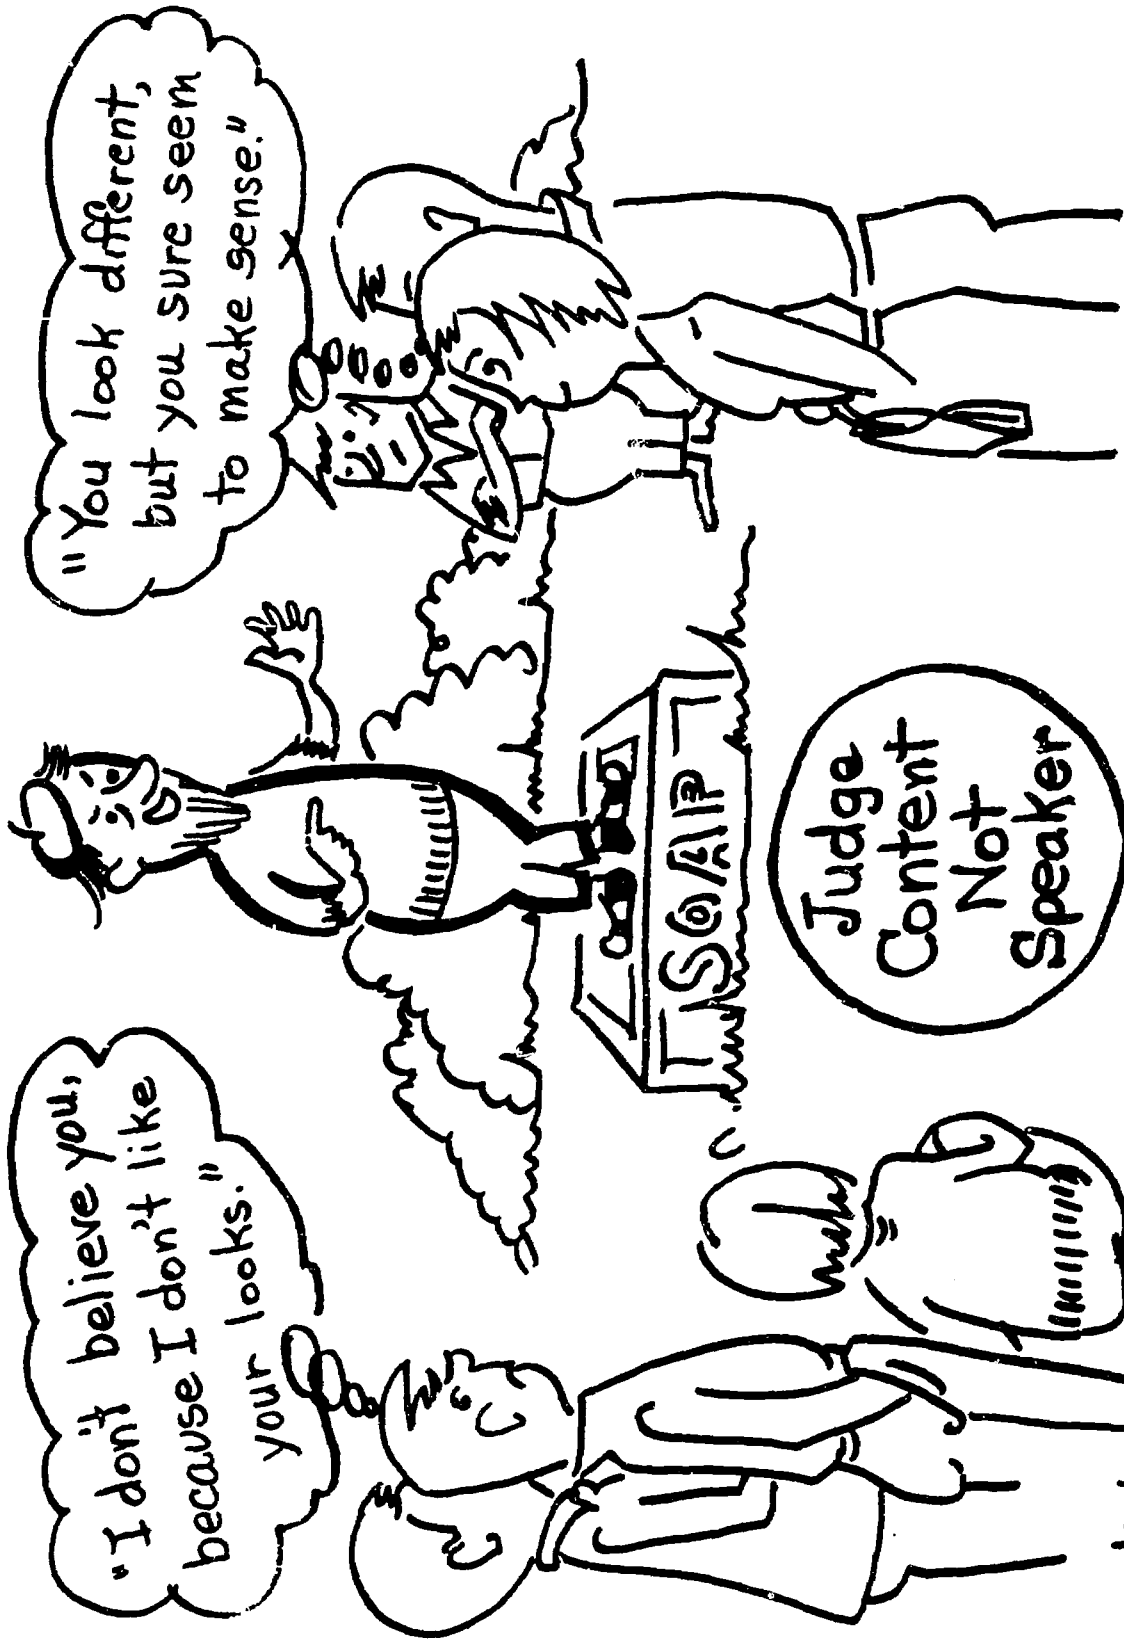 "I don't
believe you,
because I don't like
your looks."
"You look different,
but you sure seem
to make sense."
SOAP
Judge
Content
Not
Speaker